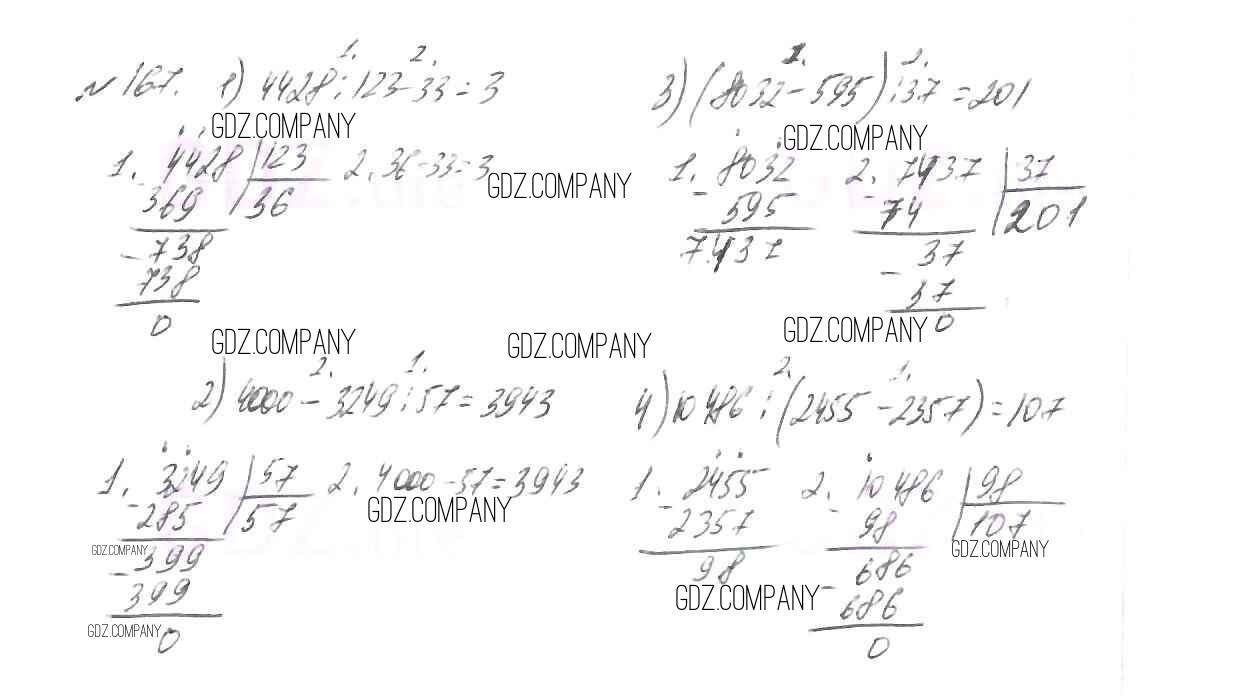 № 167. 1) 4428 : 123 - 33 = 3
1. 2.
GDZ.COMPANY
1. 4428 | 123
- 369 | 36
- 738
738
0
2. 36 - 33 = 3
GDZ.COMPANY
GDZ.COMPANY
3) (8032 - 595) : 37 = 201
1. 2.
GDZ.COMPANY
1. 8032
- 595
7437
2. 7437 | 37
- 74 | 201
- 37
37
0
GDZ.COMPANY
GDZ.COMPANY
2) 4000 - 3249 : 57 = 3943
2. 1.
1. 3249 | 57
- 285 | 57
- 399
399
0
2. 4000 - 57 = 3943
GDZ.COMPANY
GDZ.COMPANY
GDZ.COMPANY
4) 10486 : (2455 - 2357) = 107
2. 1.
1. 2455
- 2357
98
2. 10486 | 98
- 98 | 107
- 686
686
0
GDZ.COMPANY
GDZ.COMPANY